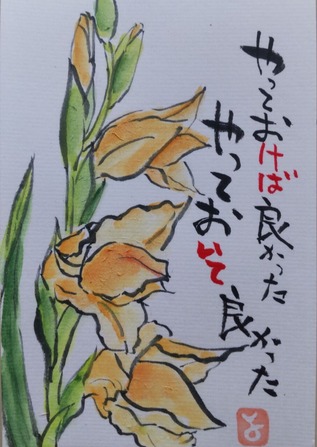 やっておけば良かった
やっておいて良かった